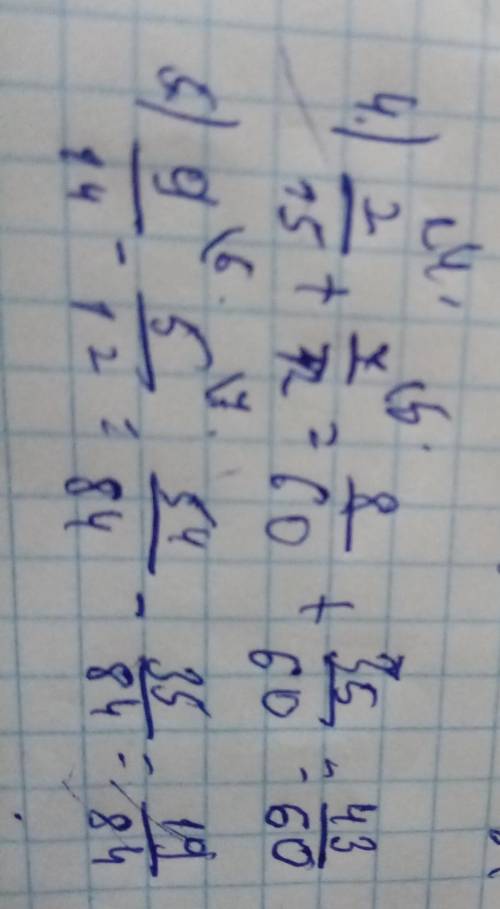 4.) 2/15 \4 + 7/12 \5 = 8/60 + 35/60 = 43/60
5) 9/14 \6 - 5/12 \7 = 54/84 - 35/84 = 19/84